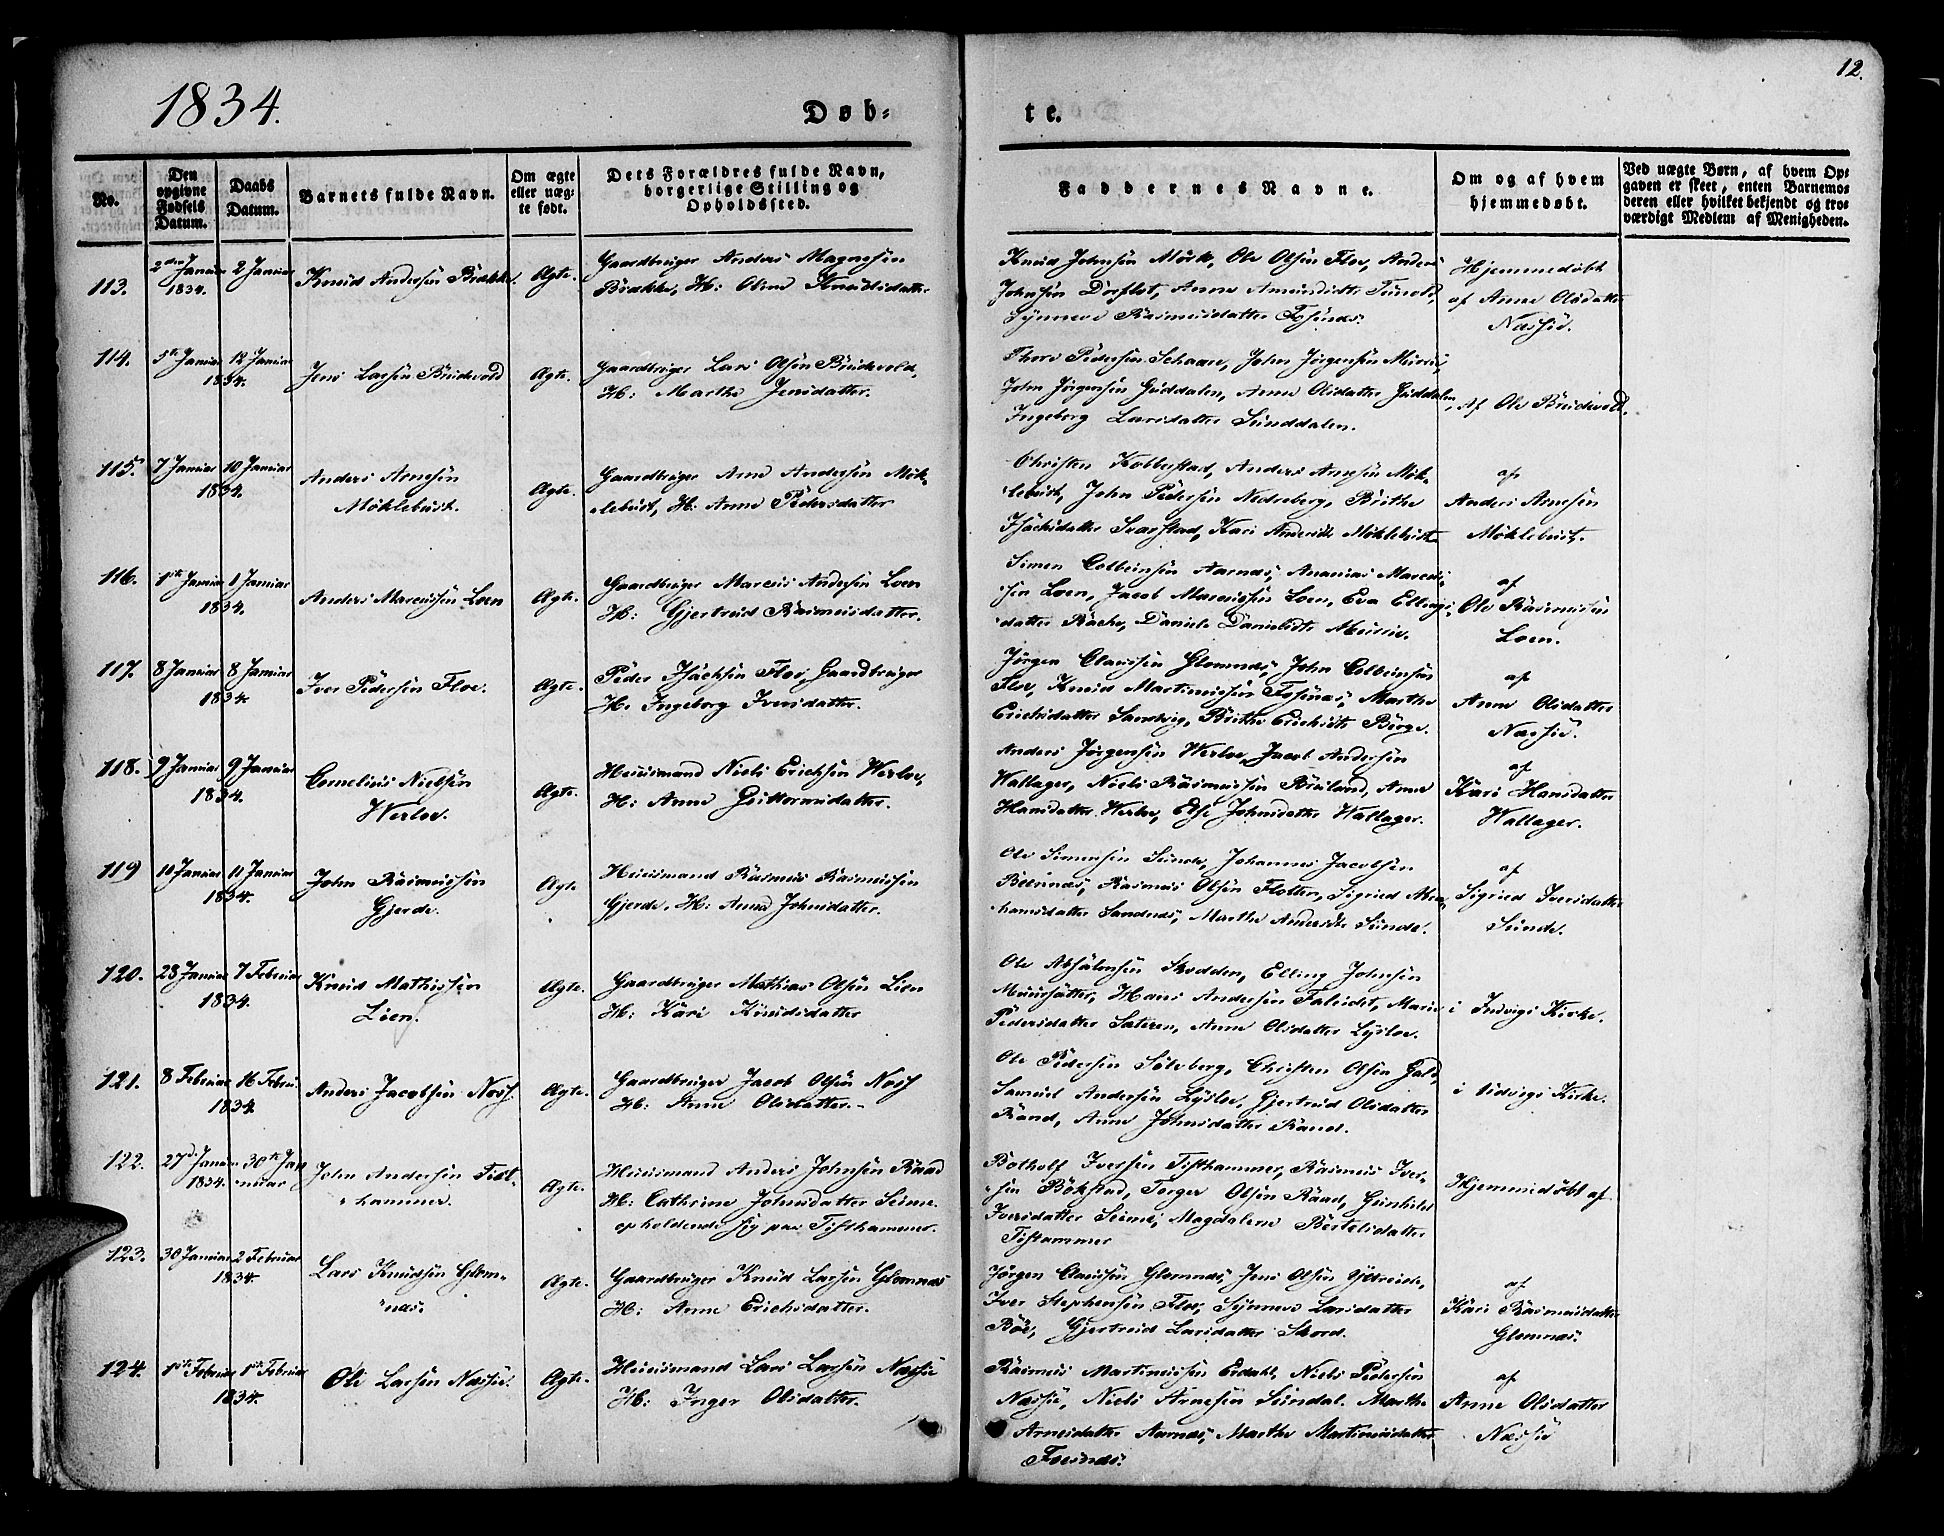 12.
1834.
Døb-
te.
No.
Den opgivne Fødsels Datum.
Daabs Datum.
Barnets fulde Navn.
Om ægte eller uægte født.
Dets Forældres fulde Navn, borgerlige Stilling og Opholdssted.
Faddernes Navne.
Om og af hvem hjemmedøbt.
Ved uægte Børn, af hvem Opgaven er skeet, enten Barnemoderen eller hvilket bekjendt og troværdigt Medlem af Menigheden.
113. 2den Januar 2 Januar
1834.
Knud Andersen Brække.
Ægte.
Gaardbruger Anders Magnesen
Brække, H: Oline Knudsdatter
Knud Johnsen Mørk, Ole Olsen Floe, Anders
Johnsen Dorflot, Anne Amundsdtr
Synneve Rasmusdatter
Hjemmedøbt
af Anne Olsdatter
Næssie.
114. 5te Januar 12 Januar
1834.
Jens Larsen Brudevold
Ægte.
Gaardbruger Lars Olsen Brudevold,
H: Marthe Jensdatter.
Thore Pedersen Schaare, John Jørgensen
John Jørgensen Guddalen, Anne Olsdatter Guddalen,
Ingeborg Larsdatter Sunddalen.
Af Ole Brudevold.
115. 7 Januar 10 Januar
1834.
Anders Arnesen
Möklebust.
Ægte.
Gaardbruger Arne Andersen Mök-
lebust, H: Anne Pedersdatter
Christen Kolberstad, Anders Arnesen Mök-
lebust, John Pedersen Nedreberg, Brithe
Isachsdatter Svarstad, Kari Andersdtr Möklebust.
af
Anders Arnesen
Möklebust.
116. 1ste Januar 1 Januar
1834.
Anders Marcussen Loen
Ægte.
Gaardbruger Marcus Andersen Loen
H: Gjertrud Rasmusdatter.
Simen Colbeinsen Aarnes, Ananias Marcus-
sen Loen, Jacob Marcussen Loen, Eva Ellings-
datter Rache, Daniele Danielsdtr
af
Ole Rasmussen
Loen.
117. 8 Januar 8 Januar
1834.
Iver Pedersen Floe.
Ægte.
Peder Isachsen Floe, Gaardbruger
H: Ingeborg Iversdatter.
Jørgen Claussen Glomnes, John Colbeinsen
Floe, Knud Martinussen Marthe
Erichsdatter Sandvig, Brithe Erichsdtr Berge.
af
Anne Olsdatter
Næssie.
118. 9 Januar 9 Januar
1834.
Cornelius Nielsen
Werloe.
Ægte.
Huusmand Niels Erichsen Werloe,
H: Anne Guttormsdatter.
Anders Jørgensen Werloe, Jacob Andersen
Wallager, Niels Rasmussen Anne
Hansdatter Werloe, Else Johnsdatter Wallager.
af
Kari Hansdatter
Wallager.
119 11 Januar 11 Januar
1834.
John Rasmussen
Gjerde.
Ægte
Huusmand Rasmus Rasmussen
Gjerde, H: Anna Johnsdatter.
Ole Simensen Sunde, Johannes Jacobsen
Rasmus Olsen Flotten, Sigried Abra-
hamsdatter Sandnes, Marthe Andersdtr Sunde.
af
Sigried Iversdatter
Sunde.
120. 28 Januar 7 Februar
1834.
Knud Mathissen
Lien.
Ægte.
Gaardbruger Mathias Olsen Lien
H: Kari Knudsdatter
Ole Absalonsen Skredden, Elling Johnsen
Muursætter, Hans Andersen Faleidet, Marie
Pedersdatter Sateren, Anne Olsdatter Lysloe.
i Indvigs Kirke.
121. 8 Februar 16 Februar
1834.
Anders Jacobsen Noss
Ægte.
Gaardbruger Jacob Olsen Noss
H: Anne Olsdatter.
Ole Pedersen Solvberg, Christen Olsen Hald,
Samuel Andersen Lysloe, Gjertrud Olsdatter
Rand, Anne Johnsdatter Rand.
i Udvigs Kirke.
122. 27de Januar 30te Jan-
1834. nuar
John Andersen Tist-
hammer.
Ægte.
Huusmand Anders Johnsen Raad
H: Cathrine Johnsdatter Seime
opholdende sig paa Tisthammer.
Botholf Iversen Tisthammer, Rasmus Iver-
sen Bökstad, Torger Olsen Raad, Gunhild
Iversdatter Seime, Magdalene Bertelsdatter
Tisthammer
Hjemmedøbt af
123. 30 Januar 2 Februar
1834.
Lars Knudsen Glom-
nes.
Ægte.
Gaardbruger Knud Larsen Glomnes
H: Anne Erichsdatter.
Jørgen Claussen Glomnes, Jens Olsen Yttreide,
Iver Stephensen Floe, Synneve Larsdatter
Böe, Gjertrud Larsdatter Skord.
af
Kari Rasmusdatter
Glomnes.
124. 1ste Februar 1ste Februar
1834.
Ole Larsen Næssie.
Ægte.
Huusmand Lars Larsen Næssie
H: Inger Olsdatter.
Rasmus Martinussen Eidahl, Niels Pedersen
Næssie, Niels Arnesen Sundal. Marthe
Arnesdatter Aarnes, Marthe Martinusdatter
af
Anne Olsdatter
Næssie